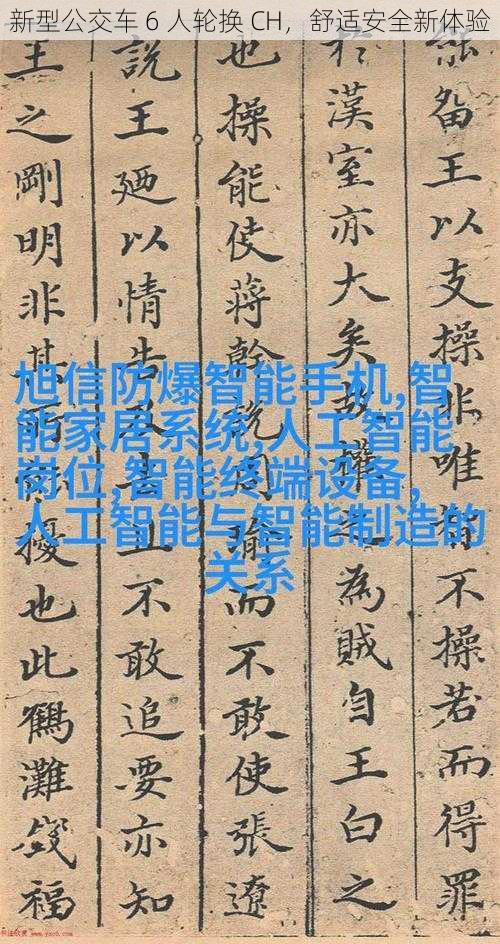 新型公交车 6 人轮换 CH，舒适安全新体验
畱王以支操非唯不操若而得罪
於漢室亦大矣故權為賊自王白之
也操能使蔣幹說周瑜而不敢使張遼
說王廼以情告且不敢追要亦知
王之剛明非其所擾也此鶴灘錢福
旭信防爆智能手机,智
能家居系统,人工智能
岗位,智能终端设备,
人工智能与智能制造的
关系